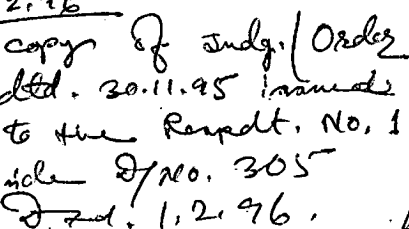 2.96
copy of Judg./Order
dtd. 30.11.95 issued
to the Respdt. No. 1
vide D/No. 305
Dtd. 1.2.96.